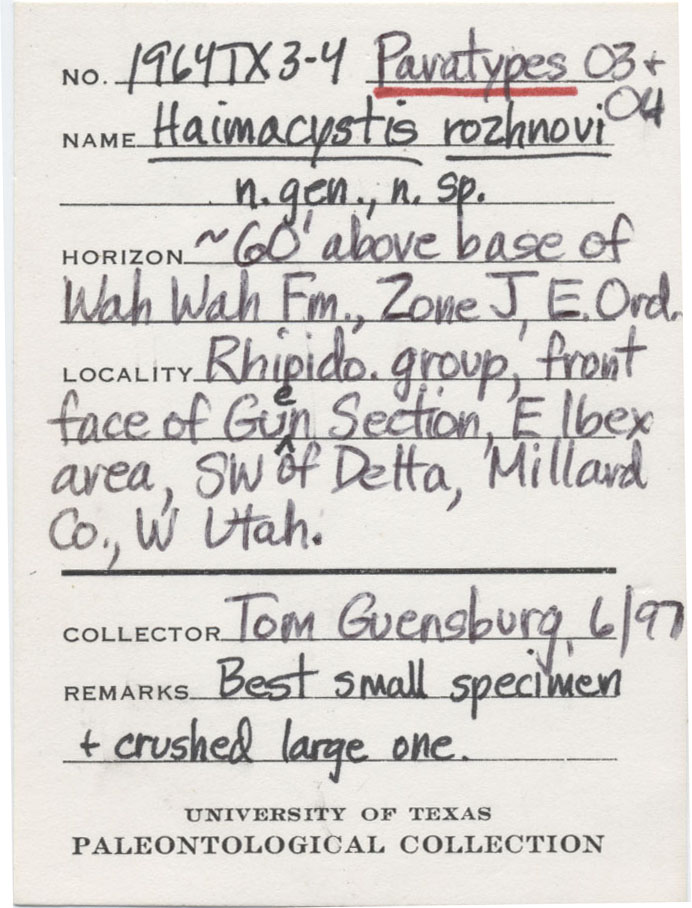 NO. 1964TX3-4 Paratypes 03+
04
NAME Haimacystis rozhnovi
n. gen., n. sp.
HORIZON ~60' above base of
Wah Wah Fm., Zone J, E. Ord.
LOCALITY Rhipido. group, front
face of Guen Section, E Ibex
area, SW of Delta, Millard
Co., W Utah.
COLLECTOR Tom Guensburg, 6/97
REMARKS Best small specimen
+ crushed large one.
UNIVERSITY OF TEXAS
PALEONTOLOGICAL COLLECTION